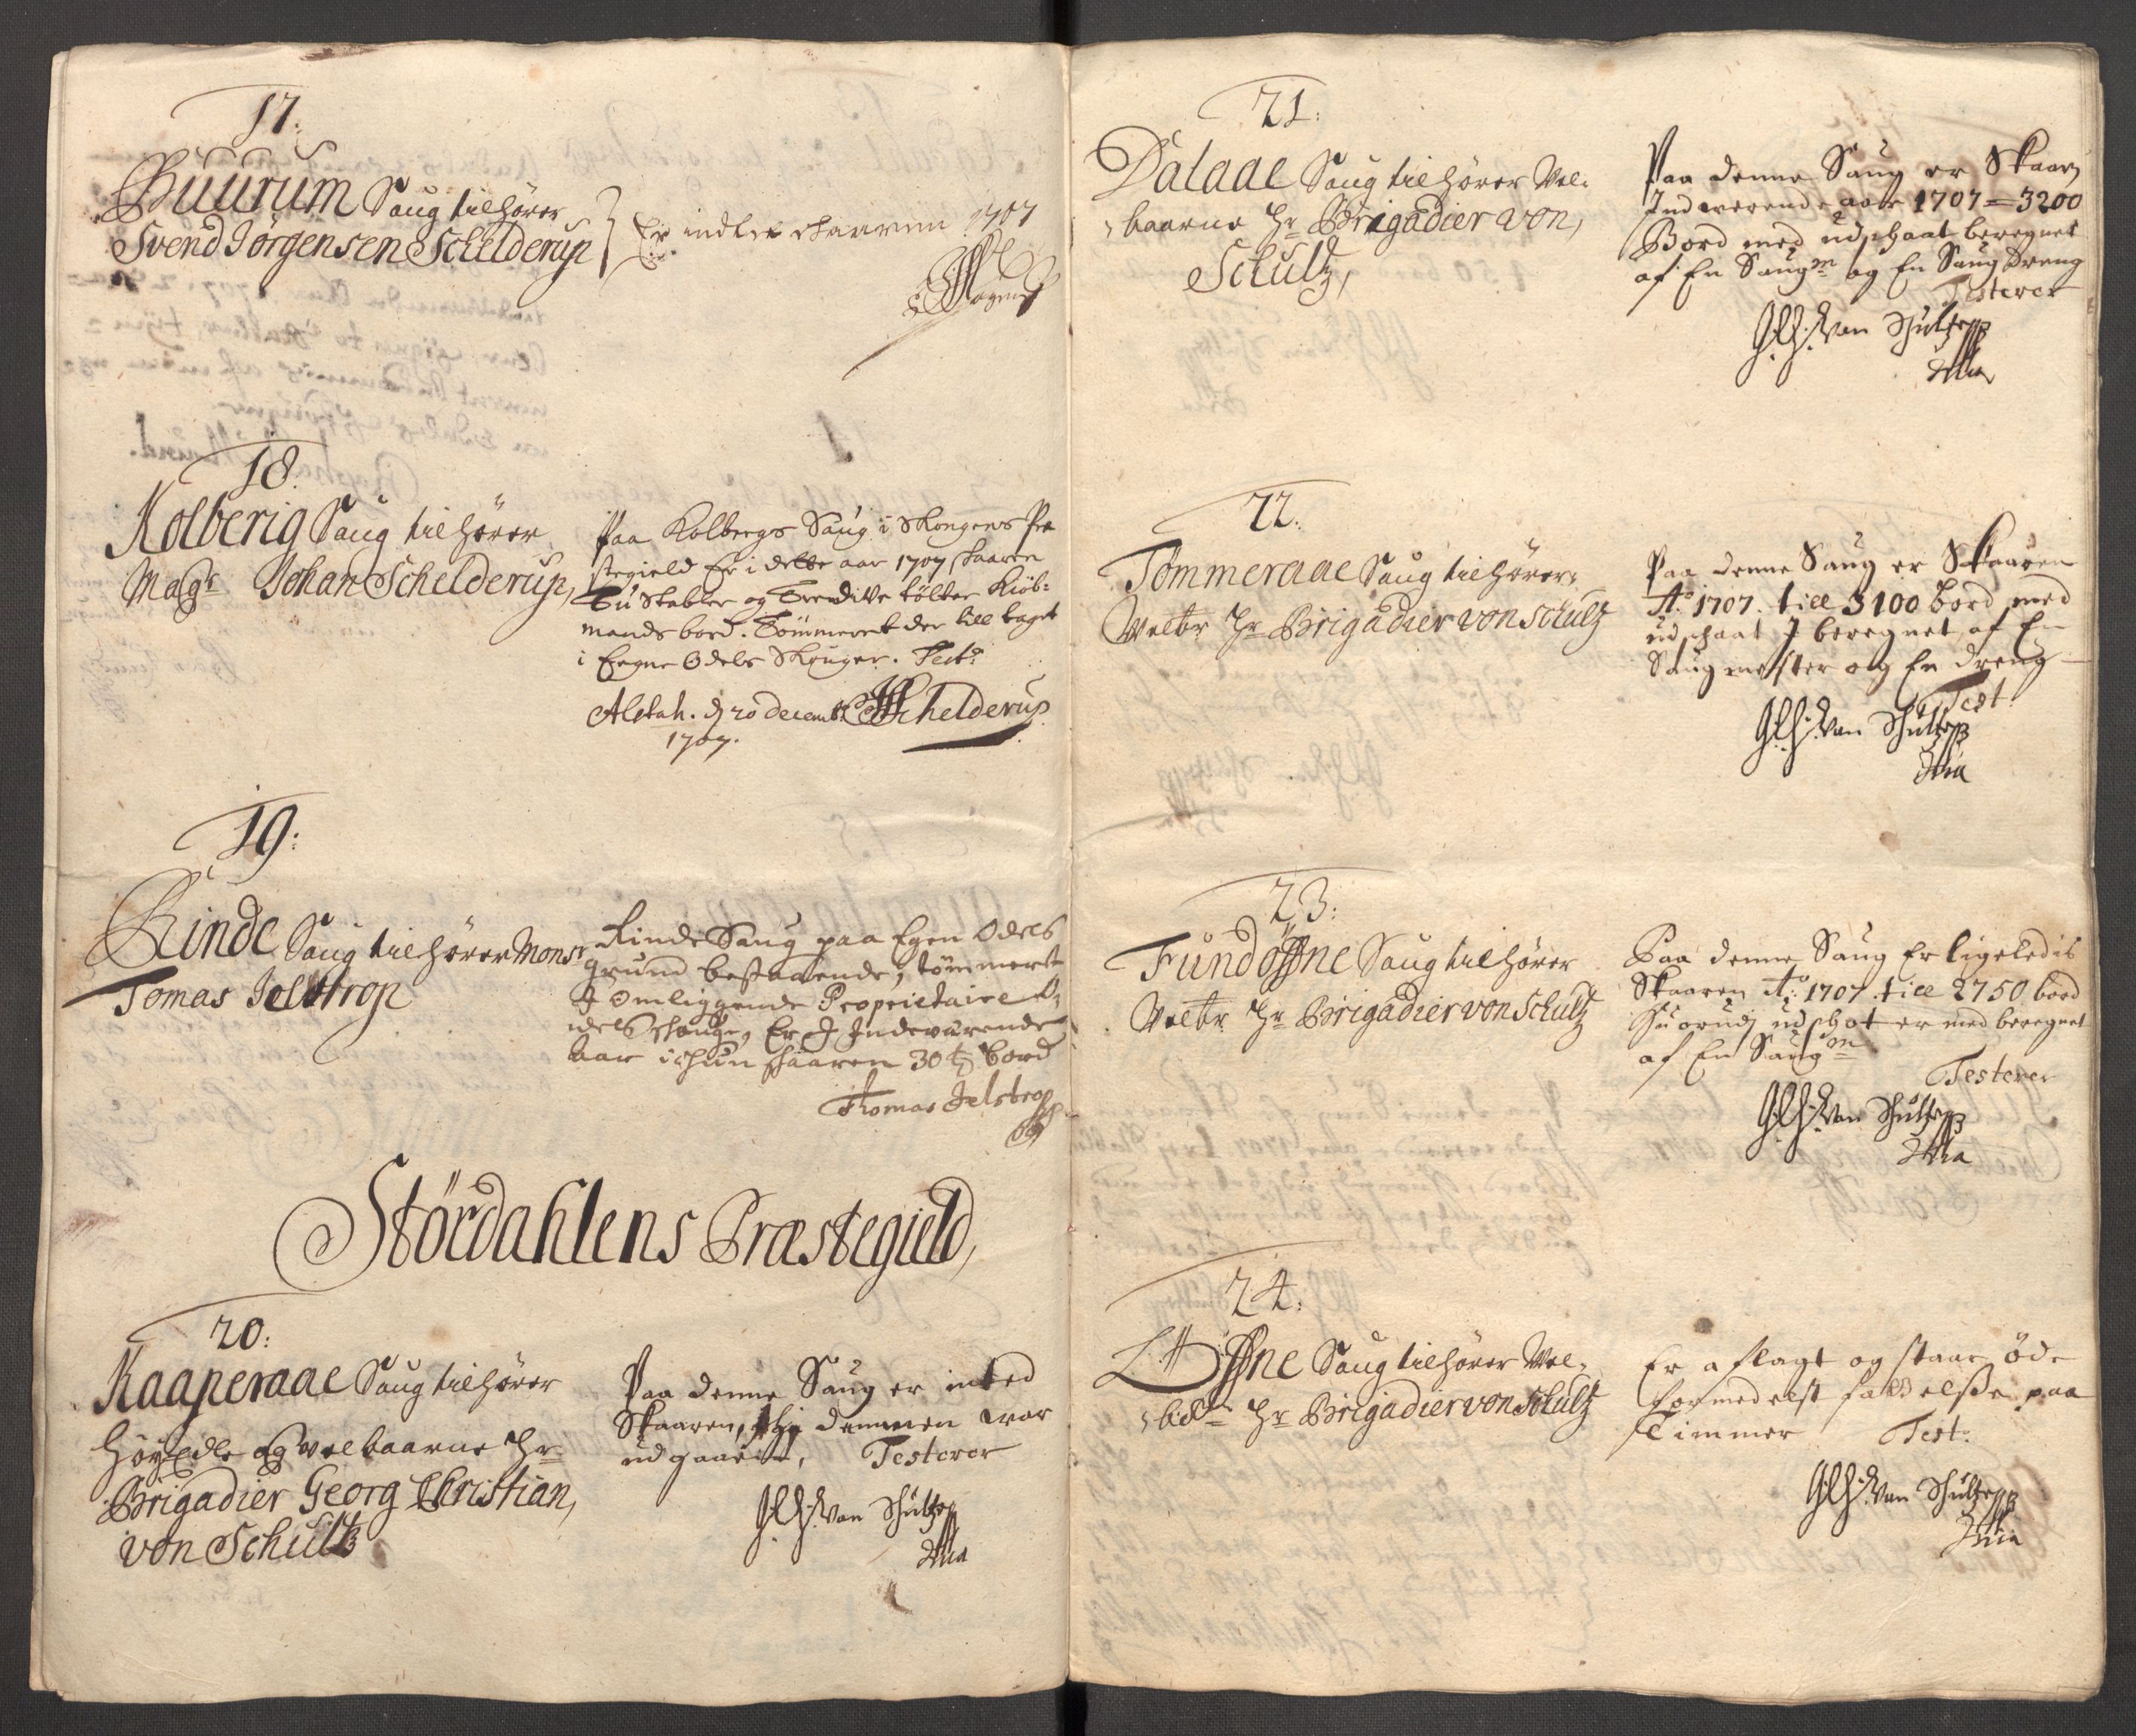 17.
Buurum Saug tilhører
Svend Jørgensen Schelderup
Er indtet skaaren 1707
18.
Kolberig Saug tilhører
Magr Johan Schelderup,
Paa Kolbergs Saug i Skongens Præ
stegield Er i dette aar 1707 skaaren
Tu Stabler og Trenditve tölter Kiöb:
mands bord. Tömmeret der till taget
i Eegne Odels Skouger. Test:
Alstah. d 20 decembr Schelderup
1707.
19:
Rinde Saug tilhører Monsr
Tomas Jelstrop
Rinde Saug paa Egen Odels
grund bestaaende, tömmeret
J Omliggende Proprietaire O:
dels schouge, Er J Indeværende
Aar ichun skaaren 30 t bord
Thomas Jelstrop
Stördahlens Præstegield,
20:
Kaaperaae Saug tilhører
HøyEdle og velbaarne Hr
Brigadier Georg Christian,
von Schultz
Paa denne Saug er inted
Skaaren, thj demmen war
udgaaen, Testerer
von Schultz
21:
Dalaae Saug tilhører Vel:
baarne Hr Brigadier von,
Schultz,
Paa denne Saug er Skaaren
Indwerende aar 1707 = 3200
Bord med udschaat beregnet
af En Saugm og En Saug Dreng
Testerer
von Schultz
22:
Tømmeraae Saug tilhører
Velbr Hr Brigadier von Schultz
Paa denne Saug er Skaaren
Ao 1707. till 3100 bord med
udschaat J beregnet af En
Saugmester og En dreng
Test:
von Schultz
23:
Fundøffne Saug tilhører
Velbr Hr Brigadier von Schultz
Paa denne Saug Er ligeledis
Skaaren Ao: 1707 till 2750 bord
huorudj udschot er med beregnet
af En Saugm
Testerer
von Schultz
24:
Saug tilhører Vel:
Hr Brigadier von Schultz
Er aflagt og staar öde
formedelst fattelße paa
Timmer Test:
von Schultz